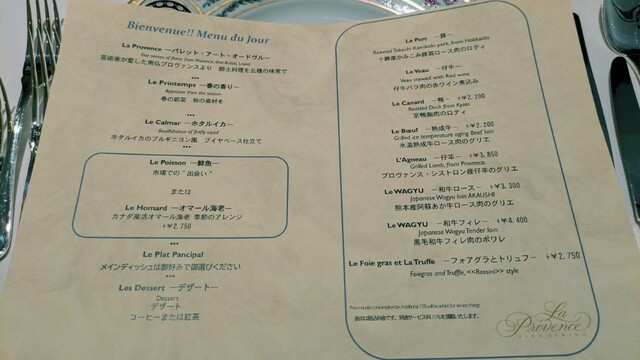 Bienvenue!! Menu du Jour
La Provence ーパレット・アート・オードヴルー
Five senses of flavor from Provence, that Artists Loved
芸術家が愛した南仏プロヴァンスより 郷土料理を五種の味覚で
***
Le Printemps ー春の香りー
Appetizer from the season
春の前菜 旬の素材を
***
Le Calmar ーホタルイカー
Bouillabaisse of firefly squid
ホタルイカのブルギニヨン風 ブイヤベース仕立て
***
Le Poisson ー鮮魚ー
市場での“出会い”
または
Le Homard ーオマール海老ー
カナダ産活オマール海老 季節のアレンジ
+￥2.750
***
Le Plat Pancipal
メインディッシュは御好みで御選びください
***
Les Dessert ーデザートー
Dessert
デザート
コーヒーまたは紅茶
Le Porc ー豚ー
Roasted Tokachi Kamikomi pork, from Hokkaido
十勝産かみこみ豚肩ロース肉のロティ
Le Veau ー仔牛ー
Veau stewed with Red wine
仔牛バラ肉の赤ワイン煮込み
Le Canard ー鴨ー +￥2,200
Roasted Duck from Kyoto
京鴨胸肉のロティ
Le Bœuf ー熟成牛ー +￥2,200
Grilled ice temperature aging Beef loin
氷温熟成牛ロース肉のグリエ
L'Agneau ー仔羊ー +￥3,850
Grilled Lamb, from Provence,
プロヴァンス・シストロン産仔羊のグリエ
Le WAGYU ー和牛ロースー +￥3,300
Japanese Wagyu loin AKAUSHI
熊本産阿蘇あか牛ロース肉のグリエ
Le WAGYU ー和牛フィレー +￥4,400
Japanese Wagyu Tender loin
黒毛和牛フィレ肉のポワレ
Le Foie gras et La Truffe ーフォアグラとトリュフー +￥2,750
Foiegras and Truffle, <<Rossini>> style
Price includes consumption tax. Additional 15% will be added for service charge
表示は税込み料金です。別途サービス料15%を頂戴いたします。
La Provence
FINE DINING